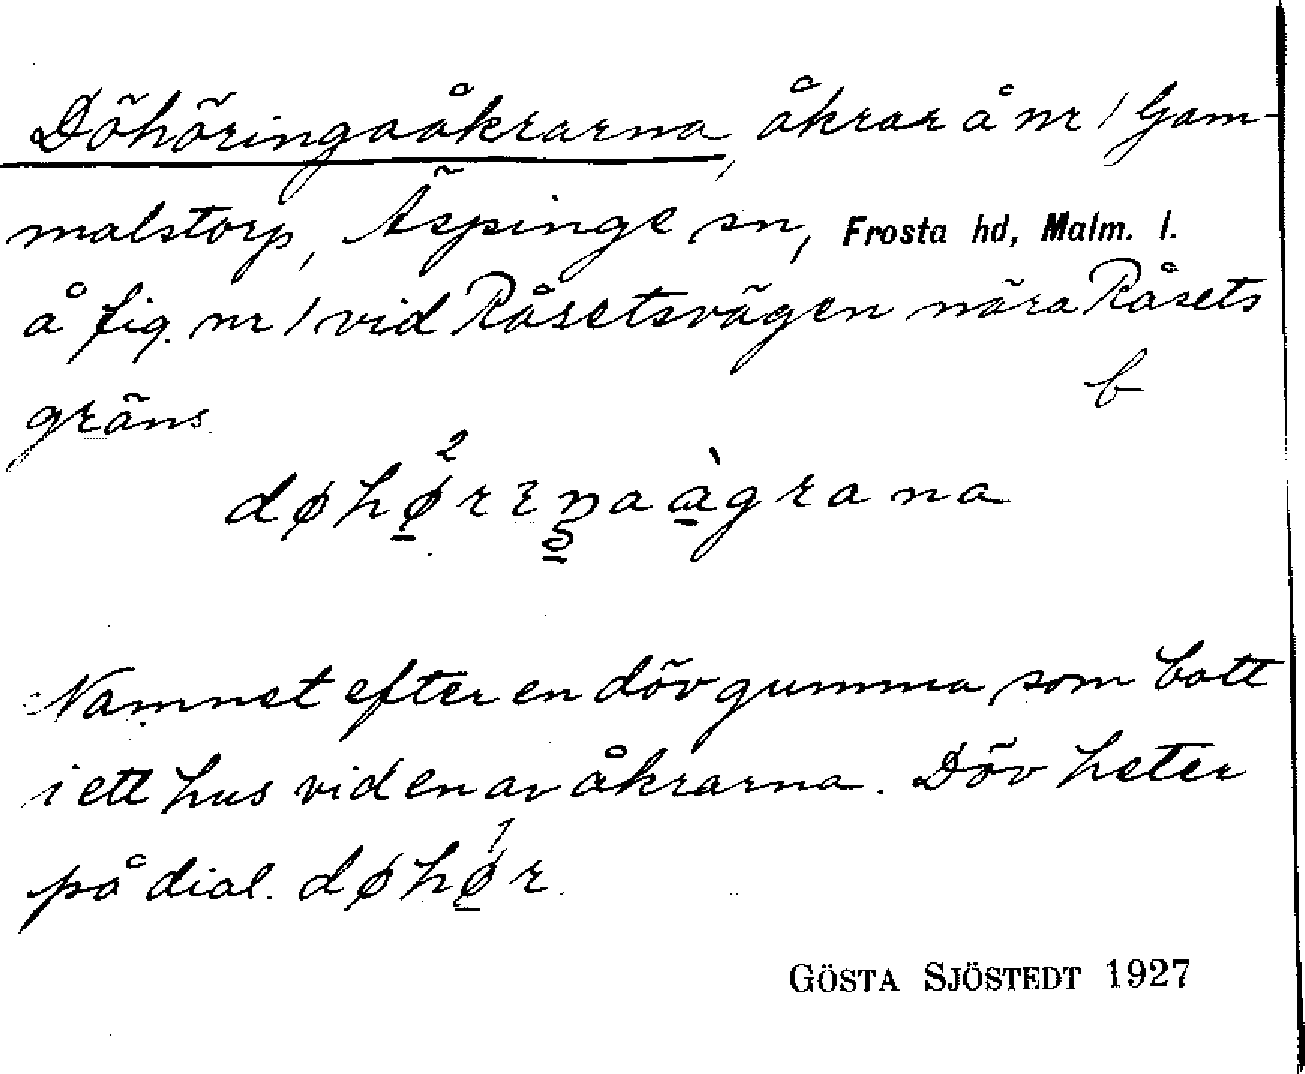 Döhöringaåkrarna, åkrar å nr 1 Gam-
malstorp, Äspinge sn, Frosta hd, Malm. l.
å fig. nr 1 vid Råsetsvägen nära Råsets
gräns. b
Namnet efter en döv gumma, som bott
i ett hus vid en av åkrarna. Döv heter
på dial. døhø̱r.
GÖSTA SJÖSTEDT 1927